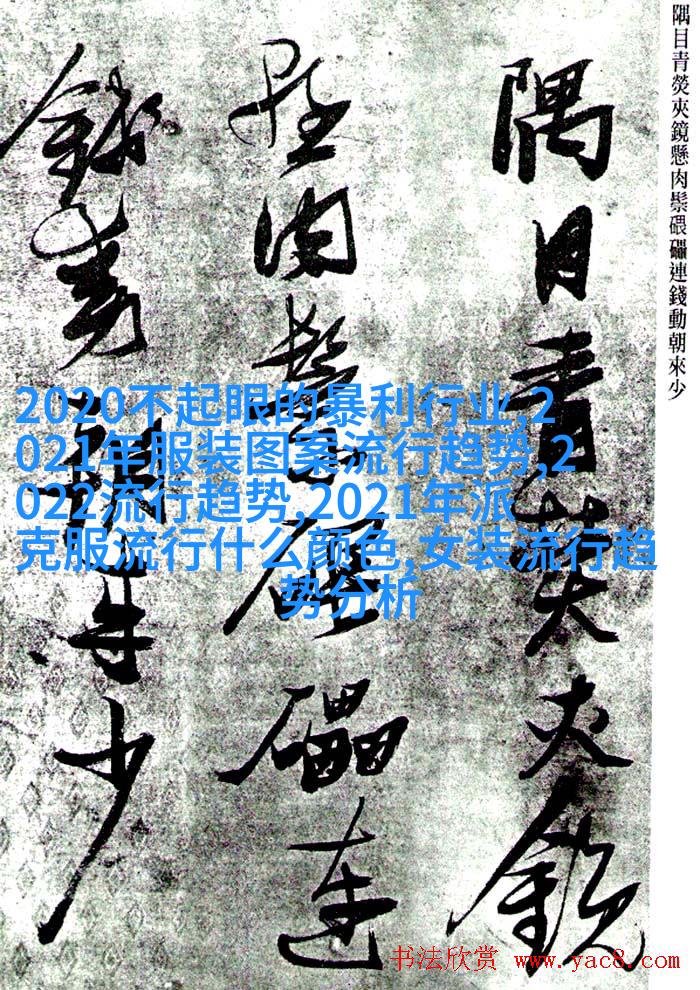 隅目青熒夾鏡懸肉鬃碨礧連錢動朝來少
隅目青熒夾鏡
懸肉鬃碨礧連
錢動朝來少
2020不起眼的暴利行业,2
021年服装图案流行趋势,2
022流行趋势,2021年派
克服流行什么颜色,女装流行趋
势分析
书法欣赏 www.yac8.com